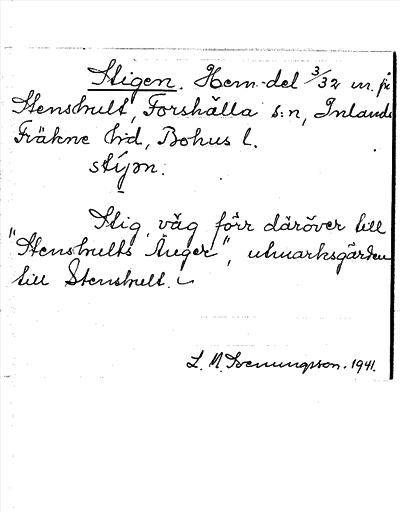 Stigen. Hem.del 3/32 m. på
Stenshult, Forshälla s:n, Inlands
Fräkne hd, Bohus l.
stýən.
Stig, väg förr däröver till
"Stenshults Änger", utmarksgärden
till Stenshult.
L. M. Svenungsson. 1941.